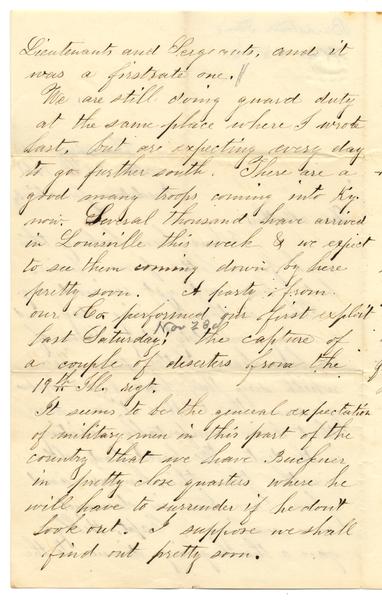 Lieutenants and Sergeants, and it
was a firstrate one.
We are still doing guard duty
at the same place where I wrote
last, but are expecting every day
to go further south. There are a
good many troops coming into Ky.
now. Several thousand have arrived
in Louisville this week & we expect
to see them coming down by here
pretty soon. A party from
our Co. performed our first exploit
Nov 23d
last Saturday; the capture of
a couple of deserters from the
19th Ill. regt.
It seems to be the general expectation
of military men in this part of the
country that we have Buckner
in pretty close quarters where he
will have to surrender if he dont
look out. I suppose we shall
find out pretty soon.